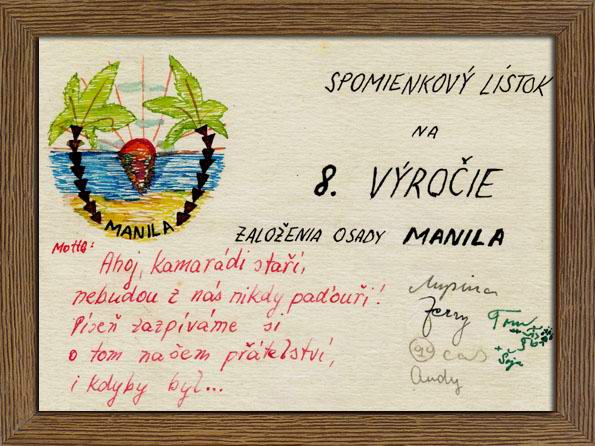 SPOMIENKOVÝ LÍSTOK
NA
8. VÝROČIE
ZALOŽENIA OSADY MANILA
MANILA
Motto:
Ahoj, kamarádi staří,
nebudou z nás nikdy paďouři!
Píseň zazpíváme si
o tom našem přátelství,
i kdyby byl...
Jerry
Tom
Andy